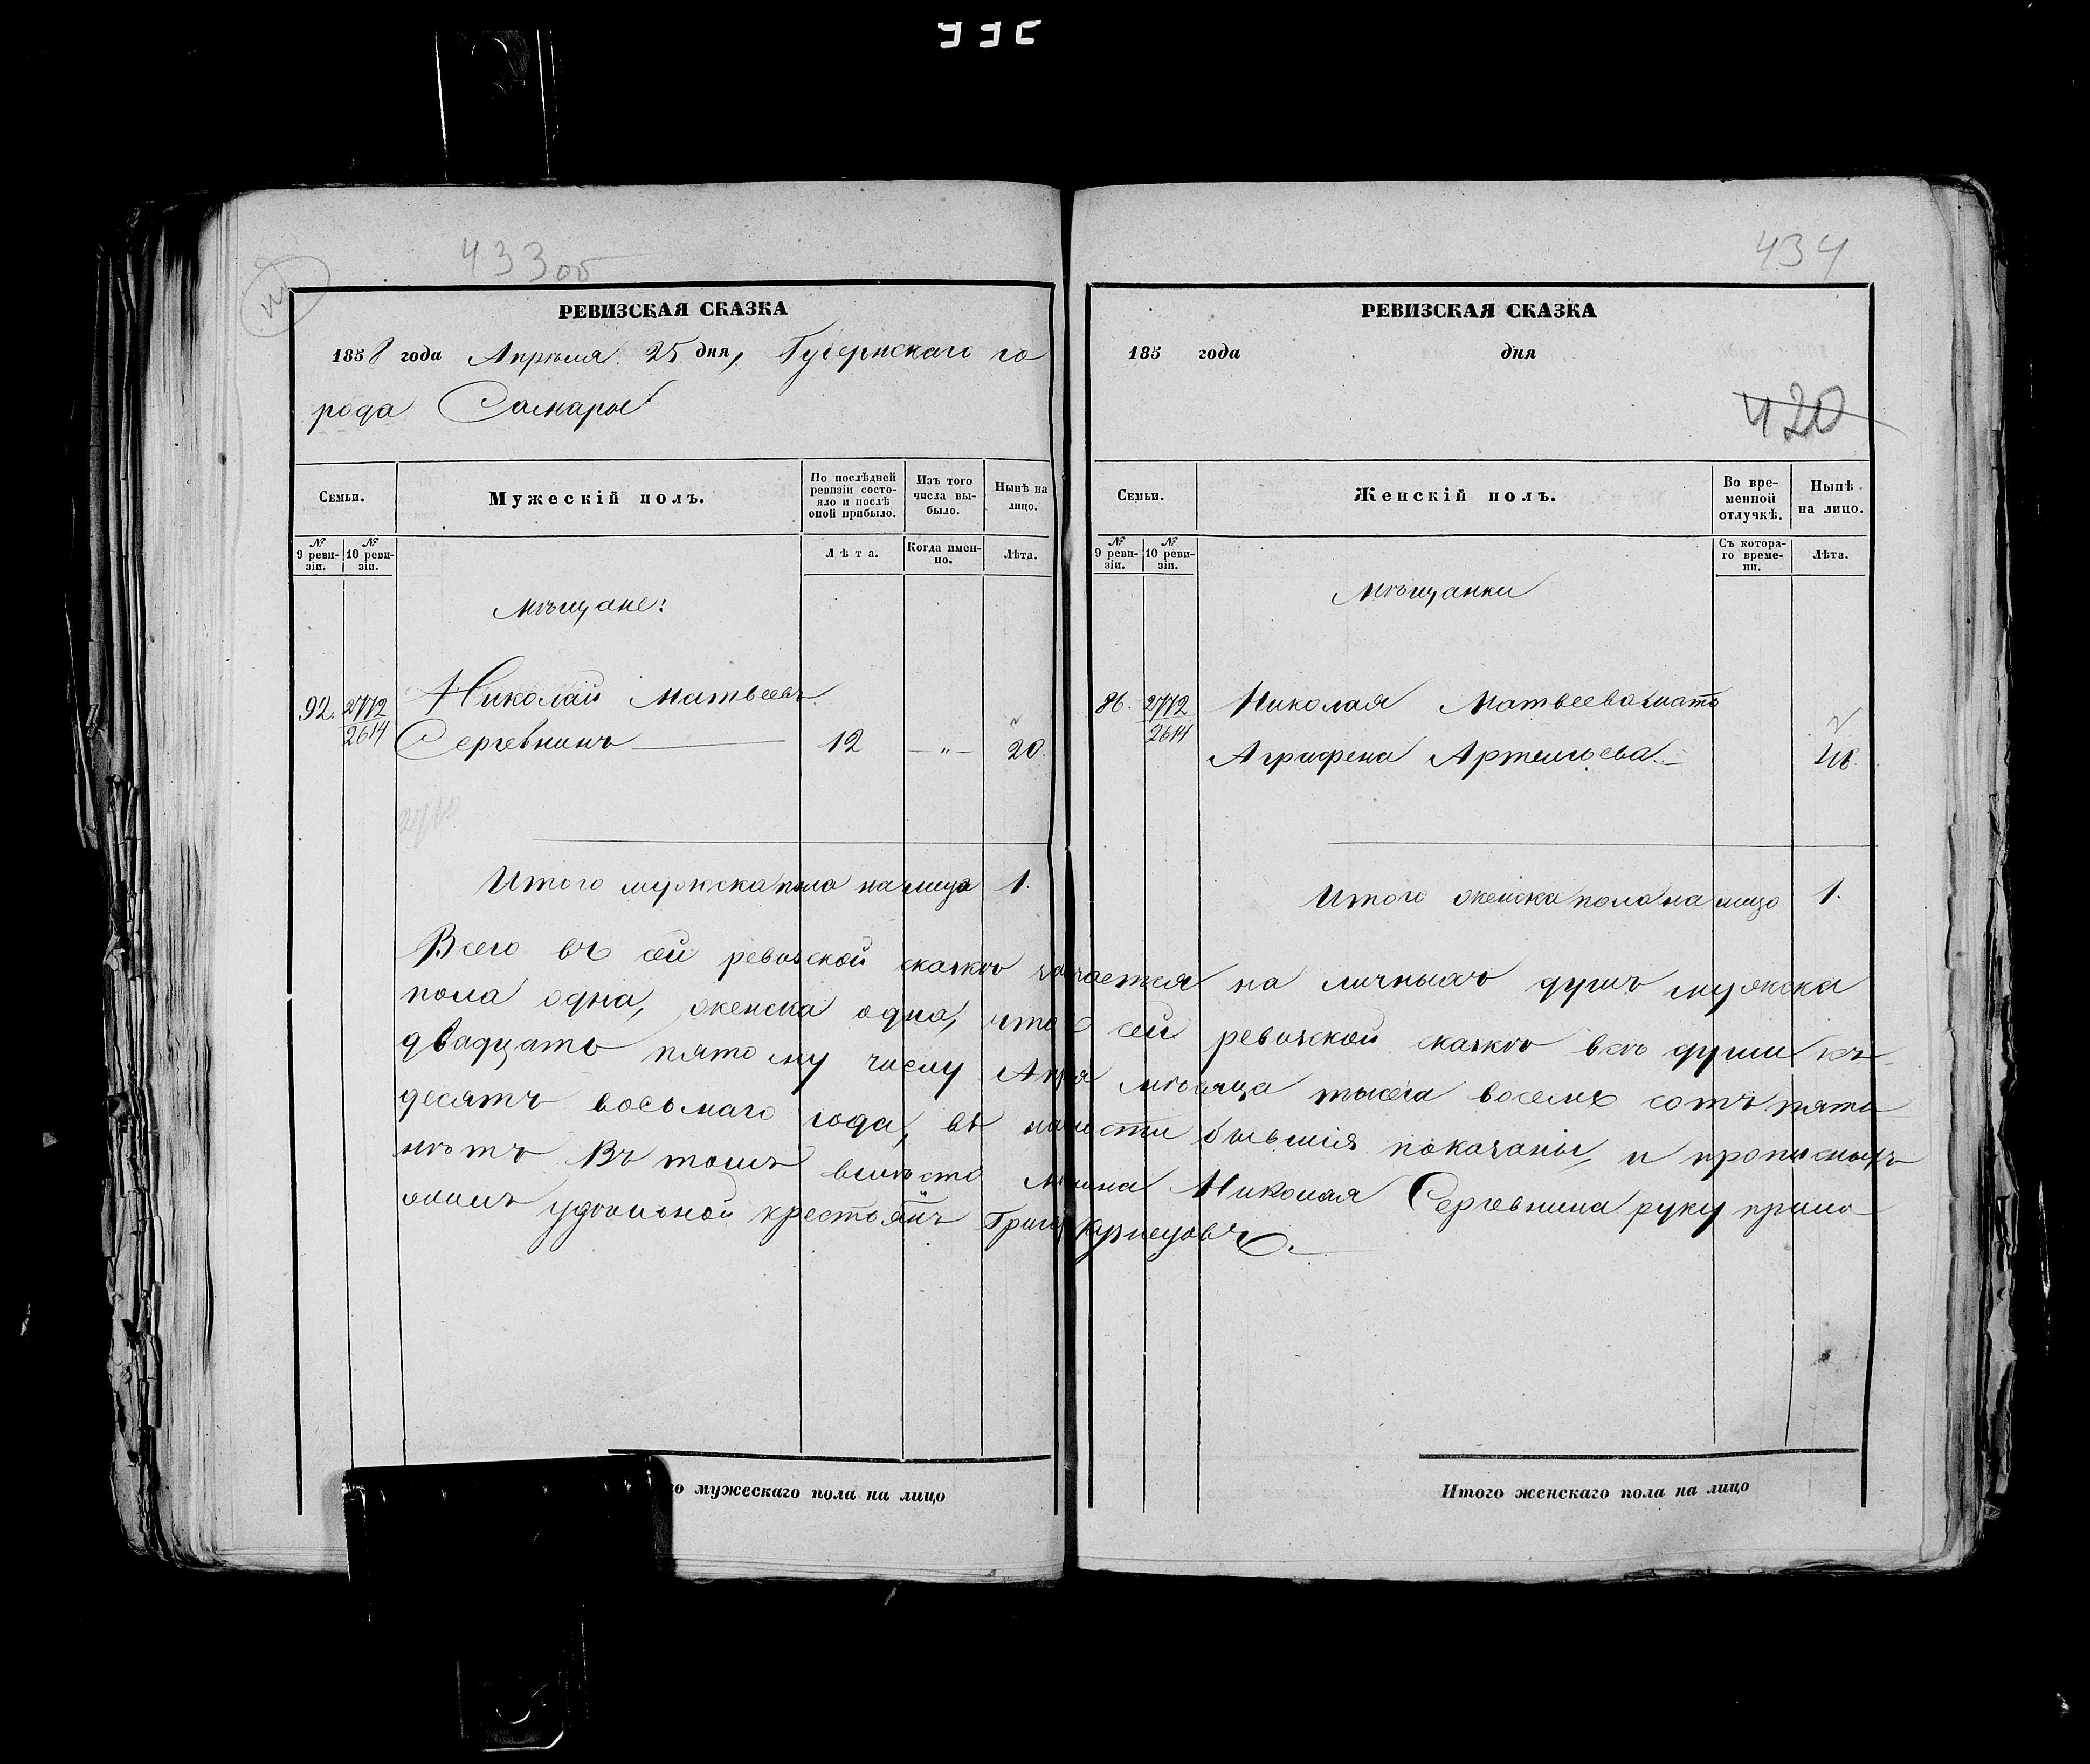 433 об
РЕВИЗСКАЯ СКАЗКА
1858 года Апреля 25 дня, Губернскаго го
рода Самары
Семьи.
Мужескій полъ.
По послѣдней ревизіи состо-
яло и послѣ
оной прибыло.
Изъ того
числа вы-
было.
Нынѣ на
лицо.
№ 9 реви-
зіи.
№ 10 реви-
зіи.
Лѣта.
Когда имен-
но.
Лѣта.
Мѣщане:
92. 2772 Николай Матвеевъ
2614 Сергевнинъ 12 — „ — 20.
Итого мужска пола на лицо 1.
434
РЕВИЗСКАЯ СКАЗКА
185 года дня
420
Семьи.
Женскій полъ.
Во вре-
менной
отлучкѣ.
Нынѣ
на лицо.
№ 9 реви-
зіи.
№ 10 реви-
зіи.
Съ котора-
го време-
ни.
Лѣта.
Мѣщанки
86. 2772 Николая Матвеева мать
2614 Аграфена Артемьева
Итого женска пола на лицо 1.
Всего въ сей ревизской сказкѣ на личныхъ душъ мужска
пола одна, женска одна, что сей ревизской сказкѣ всѣ души къ
двадцать пятому числу месяца тысеча восемь сотъ пяти
десятъ восьмаго года, въ бывшія показаны, и прописныхъ
нѣтъ Въ томъ вместо Николая Сергевнина руку прило
удѣльной крестьянъ
го мужескаго пола на лицо
Итого женскаго пола на лицо